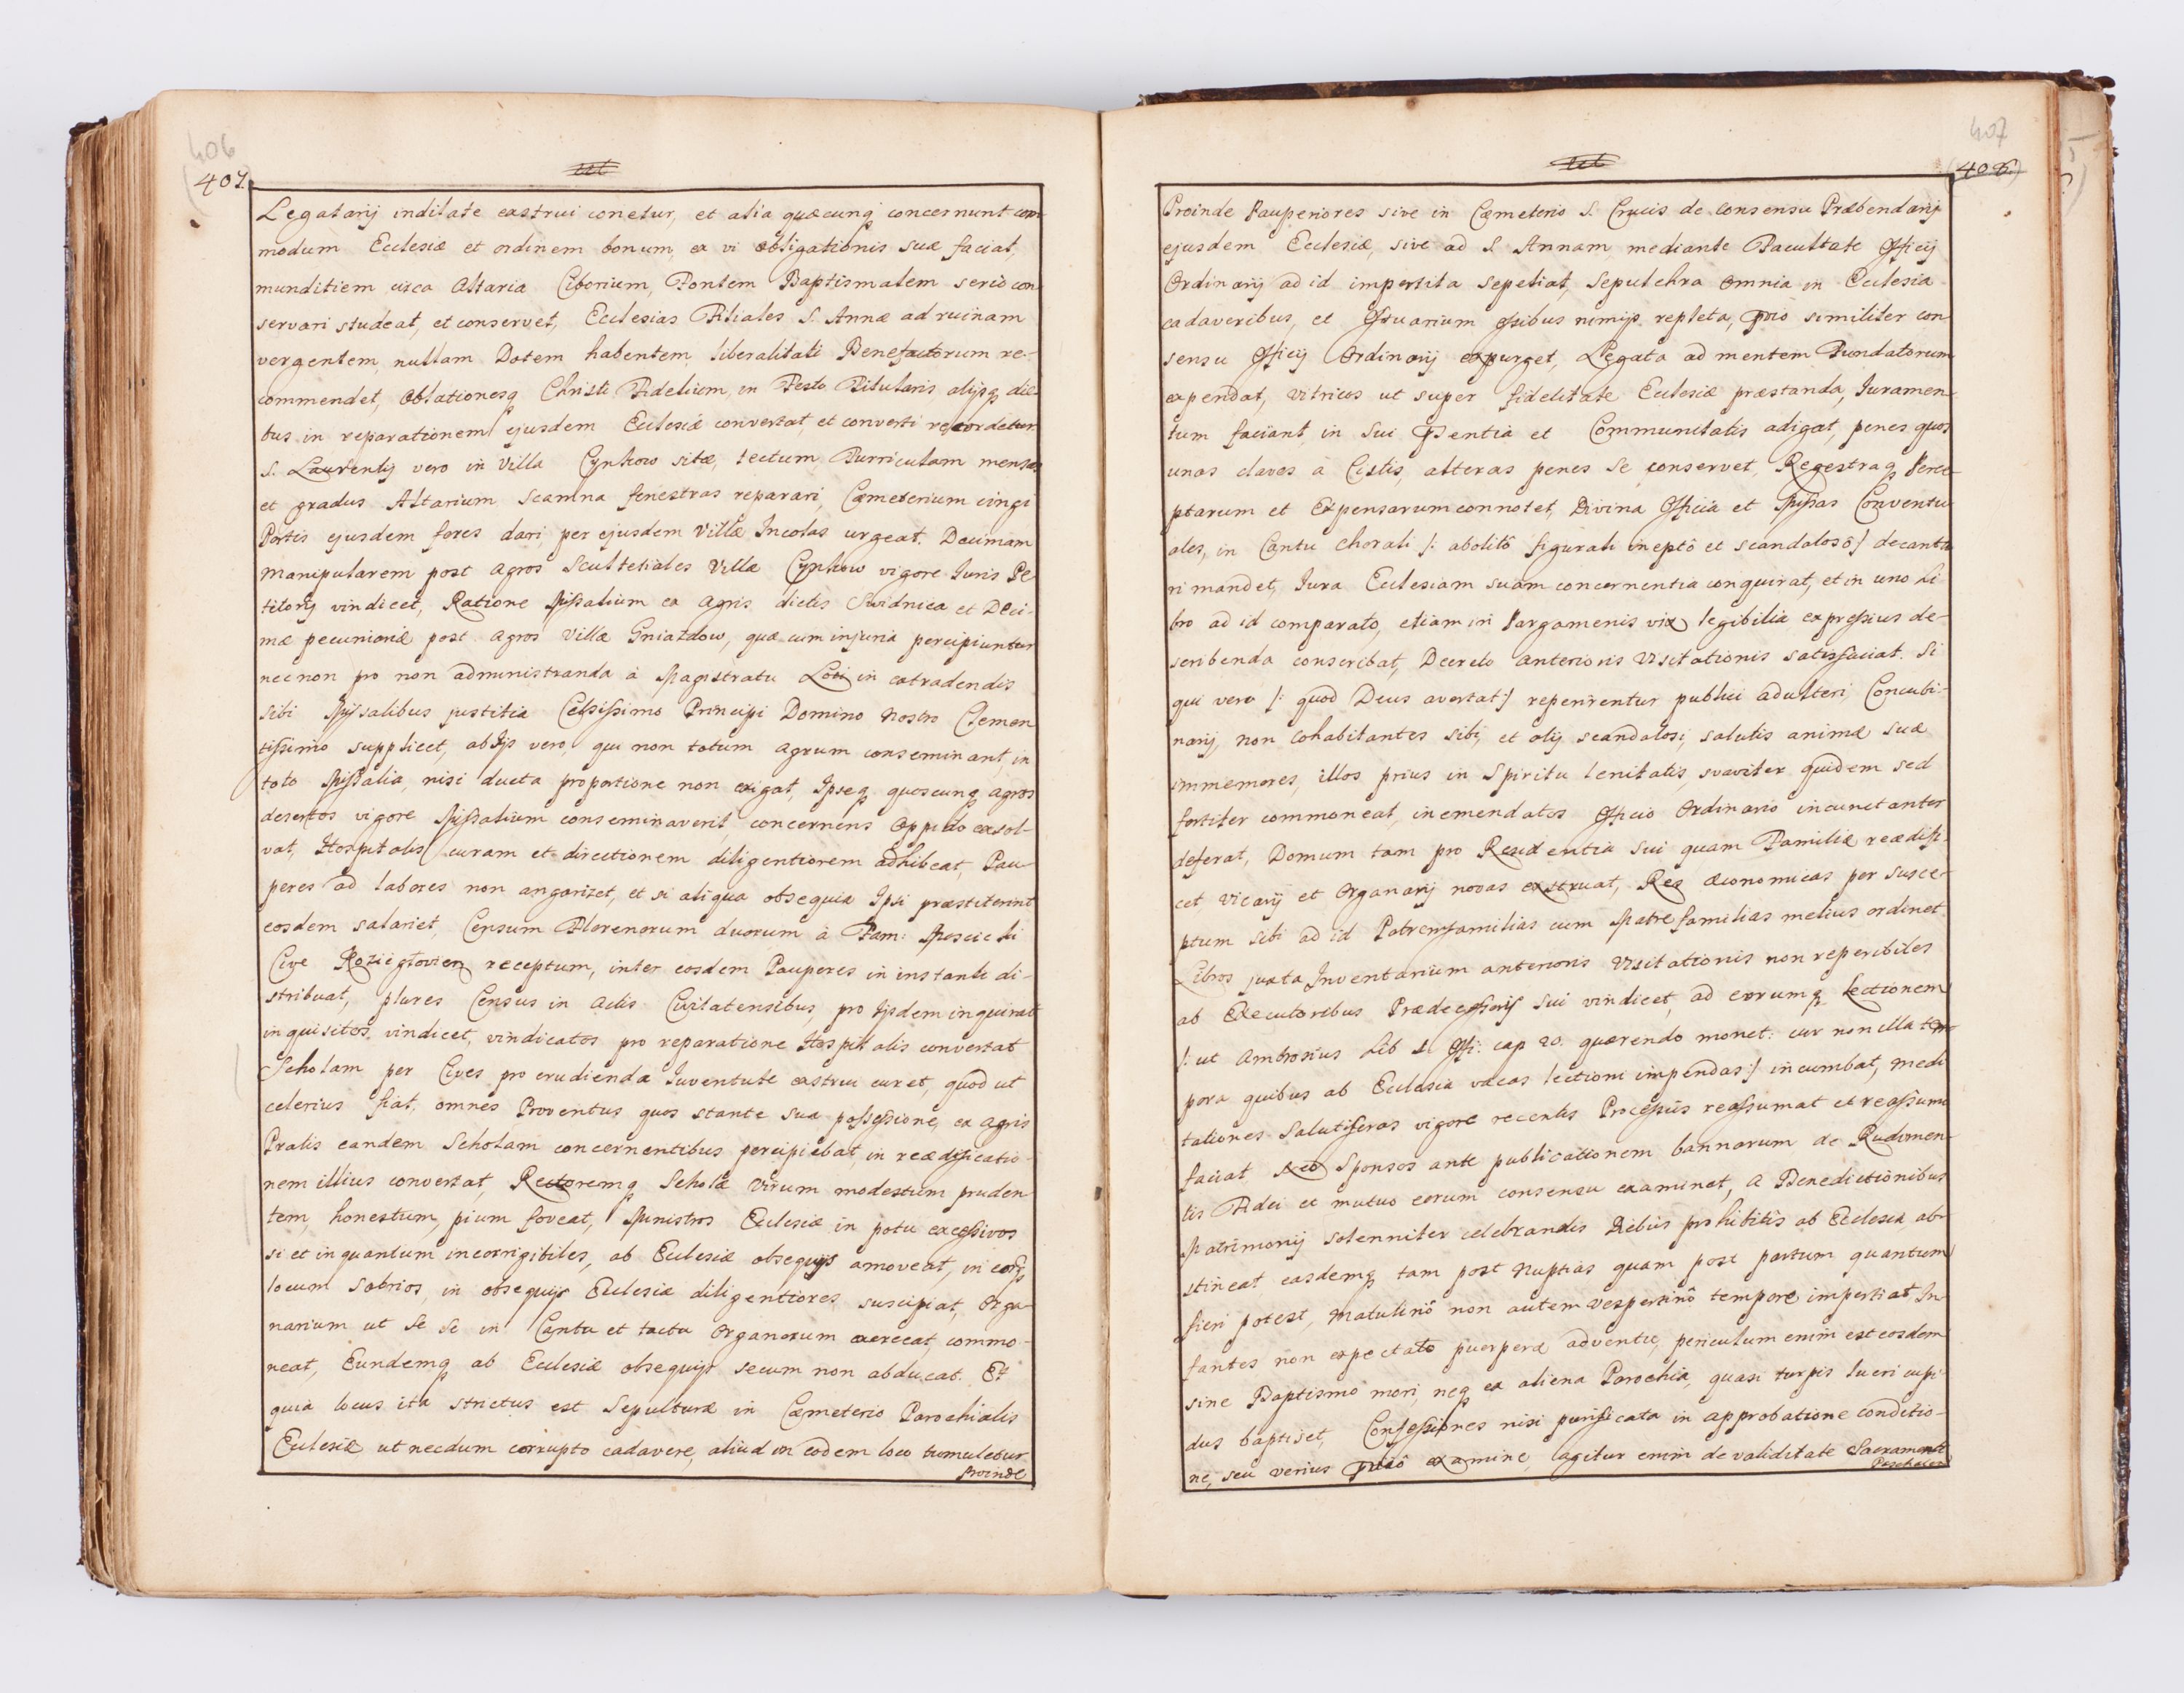 406
407.
Legatarij inditate exstrui conetur, et alia quæcunq concernunt com
modum Ecclesiæ et ordinem bonum, ex vi obligationis suæ faciat,
munditiem circa Altaria Ciborium, Fontem Baptismalem serio con
servari studeat, et conservet, Ecclesias Filiales S. Annæ ad ruinam
vergentem, nullam Dotem habentem, liberalitati Benefactorum re-
commendet, Oblationesq Christi Fidelium, in Festo Titularis alijsq die-
bus in reparationem ejusdem Ecclesiæ convertat, et converti recordetur
S. Laurentij vero in Villa Cynkow sitæ, tectum, Turriculam mensas
et gradus Altarium Scamna fenestras reparari, Cæmeterium cingi
Portis ejusdem fores dari, per ejusdem Villæ Incolas urgeat. Decimam
Manipularem post agros Scultetiales Villæ Cynkow vigore Iuris Pe
titorij vindicet, Ratione Missalium ex agris dictis Swidnica et Deci-
mæ pecuniariæ post agros Villæ Gniazdow, quæ cum injuria percipiuntur
necnon pro non administranda à Magistratu Loci in extradendis
sibi Missalibus justitia Celsissimo Principi Domino Nostro Clemen
tissimo supplicet, ab Ijs vero, qui non totum agrum conseminant, in
toto Missalia, nisi ducta proportione non exigat, Ipseq quoscunq agros
desertos vigore Missalium conseminaverit concernens Oppido exsol-
vat, Hospitalis curam et directionem diligentiorem adhibeat, Pau-
peres ad labores non angarizet, et si aliqua obsequia Ipsi præstiterint
eosdem salariet, Censum Florenorum duorum à Fam:
Cive Koziegłovien receptum, inter eosdem Pauperes in instanti di-
stribuat, plures Census in actis Civitatensibus, pro Ijsdem inquirat
inquisitos vindicet, vindicatos pro reparatione Hospitalis convertat
Scholam per Cives pro erudienda Iuventute exstrui curet, quod ut
celerius fiat, omnes Proventus quos stante sua possessione, ex agris
Pratis eandem Scholam concernentibus percipiebat, in reædificatio-
nem illius convertat, Rectoremq Scholæ Virum modestum pruden
tem, honestum, pium foveat, Ministros Ecclesiæ in potu excessivos
si et in quantum incorrigibiles, ab Ecclesiæ obsequijs amoveat, in eorq
locum sobrios, in obsequijs Ecclesiæ diligentiores suscipiat, Orga-
narium ut se se in Cantu et tactu Organorum exerceat, commo-
neat, Eundemq ab Ecclesiæ obsequijs secum non abducat. Et
quia locus ita strictus est Sepulturæ in Cæmeterio Parochialis
Ecclesiæ ut necdum corrupto cadavere, aliud in eodem loco tumuletur
Proinde
407
408.
Proinde Pauperiores sive in Cæmeterio S. Crucis de consensu Præbendarij
ejusdem Ecclesiæ, sive ad S. Annam, mediante Facultate Officij
Ordinarij ad id impertita sepeliat, Sepulchra omnia in Ecclesia
cadaveribus, et Ossuarium ossibus nimijs repleta, similiter con
sensu Officij Ordinarij expurget, Legata ad mentem Fundatorum
expendat, Vitricos ut super fidelitate Ecclesiæ præstanda, Iuramen
tum faciant, in Sui Pntia et Communitatis adigat, penes quos
unas claves à Cistis, alteras penes se conservet, Regestraq Perce-
ptarum et Expensarum connotet, Divina Officia et Missas Conventu
ales, in Cantu Chorali /: abolitô figurali ineptô et scandalosô:/ decanta
ri mandet, Iura Ecclesiam suam concernentia conquirat, et in uno Li
bro ad id comparato, etiam in Pargamenis vix legibilia expressius de-
scribenda conscribat, Decreto anterioris Visitationis satisfaciat. Si
qui vero /: quod Deus avertat:/ reperirentur publici adulteri, Concubi-
narij, non cohabitantes sibi, et alij scandalosi, salutis animæ suæ
immemores, illos prius in Spiritu lenitatis, svaviter quidem sed
fortiter commoneat, inemendatos Officio Ordinario incunctanter
deferat, Domum tam pro Residentia Sui quam Familiæ reædifi
cet Vicarij et Organarij novas exstruat, Res œconomicas per susce-
ptum sibi ad id Patremfamilias cum Matre familias melius ordinet
Libros juxta Inventarium anterioris Visitationis non reperibiles
ab Executoribus Prædecessoris sui vindicet, ad eorumq Lectionem
/: ut Ambrosius Lib 1. Offi: cap 20. quærendo monet: cur non illa tem
pora quibus ab Ecclesia vacas lectioni impendas:/ incumbat, Medi
tationes Salutiferas vigore recentis Processûs reassumat et reassumi
faciat, Sponsos ante publicationem bannorum de Rudimen
tis Fidei et mutuo eorum consensu examinet, A Benedictionibus
Matrimonij solenniter celebrandis Diebus prohibitis ab Ecclesia ab-
stineat, easdemq tam post Nuptias quam post partum quantum
fieri potest, Matutinô non autem Vespertinô tempore impertiat In-
fantes non expectato puerperæ adventu, periculum enim est eosdem
sine Baptismo mori, neq ex aliena Parochia, quasi turpis lucri cupi-
dus baptizet, Confessiones nisi purificata in approbatione conditio-
ne, seu verius examine, agitur enim de validitate Sacramenti
Paschales